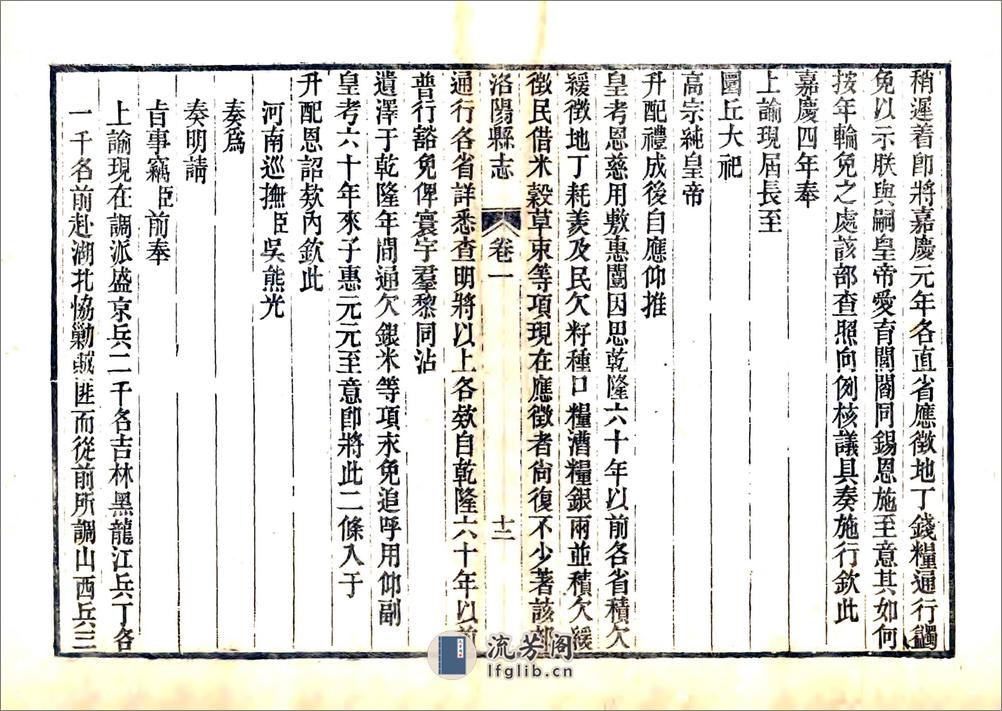 稍遲着卽將嘉慶元年各直省應徵地丁錢糧通行蠲
免以示朕與嗣皇帝愛育閭閻同錫恩施至意其如何
按年輪免之處該部查照向例核議具奏施行欽此
嘉慶四年奉
上諭現屆長至
圜丘大祀
高宗純皇帝
升配禮成後自應仰推
皇考恩慈用敷惠闓因思乾隆六十年以前各省積欠
緩徵地丁耗羨及民欠籽種口糧漕糧銀兩並積欠緩
徵民借米穀草束等項現在應徵者尙復不少著該部
洛陽縣志
卷一
十二
通行各省詳悉查明將以上各欸自乾隆六十年以前
普行豁免俾寰宇羣黎同沾
遺澤于乾隆年間逋欠銀米等項永免追呼用仰副
皇考六十年來子惠元元至意卽將此二條入于
升配恩詔欸內欽此
河南巡撫臣吳熊光
奏爲
奏明請
㫖事竊臣前奉
上諭現在調派盛京兵二千名吉林黑龍江兵丁各
一千名前赴湖北恊勦賊匪而從前所調山西兵三
流芳阁
lfglib.cn